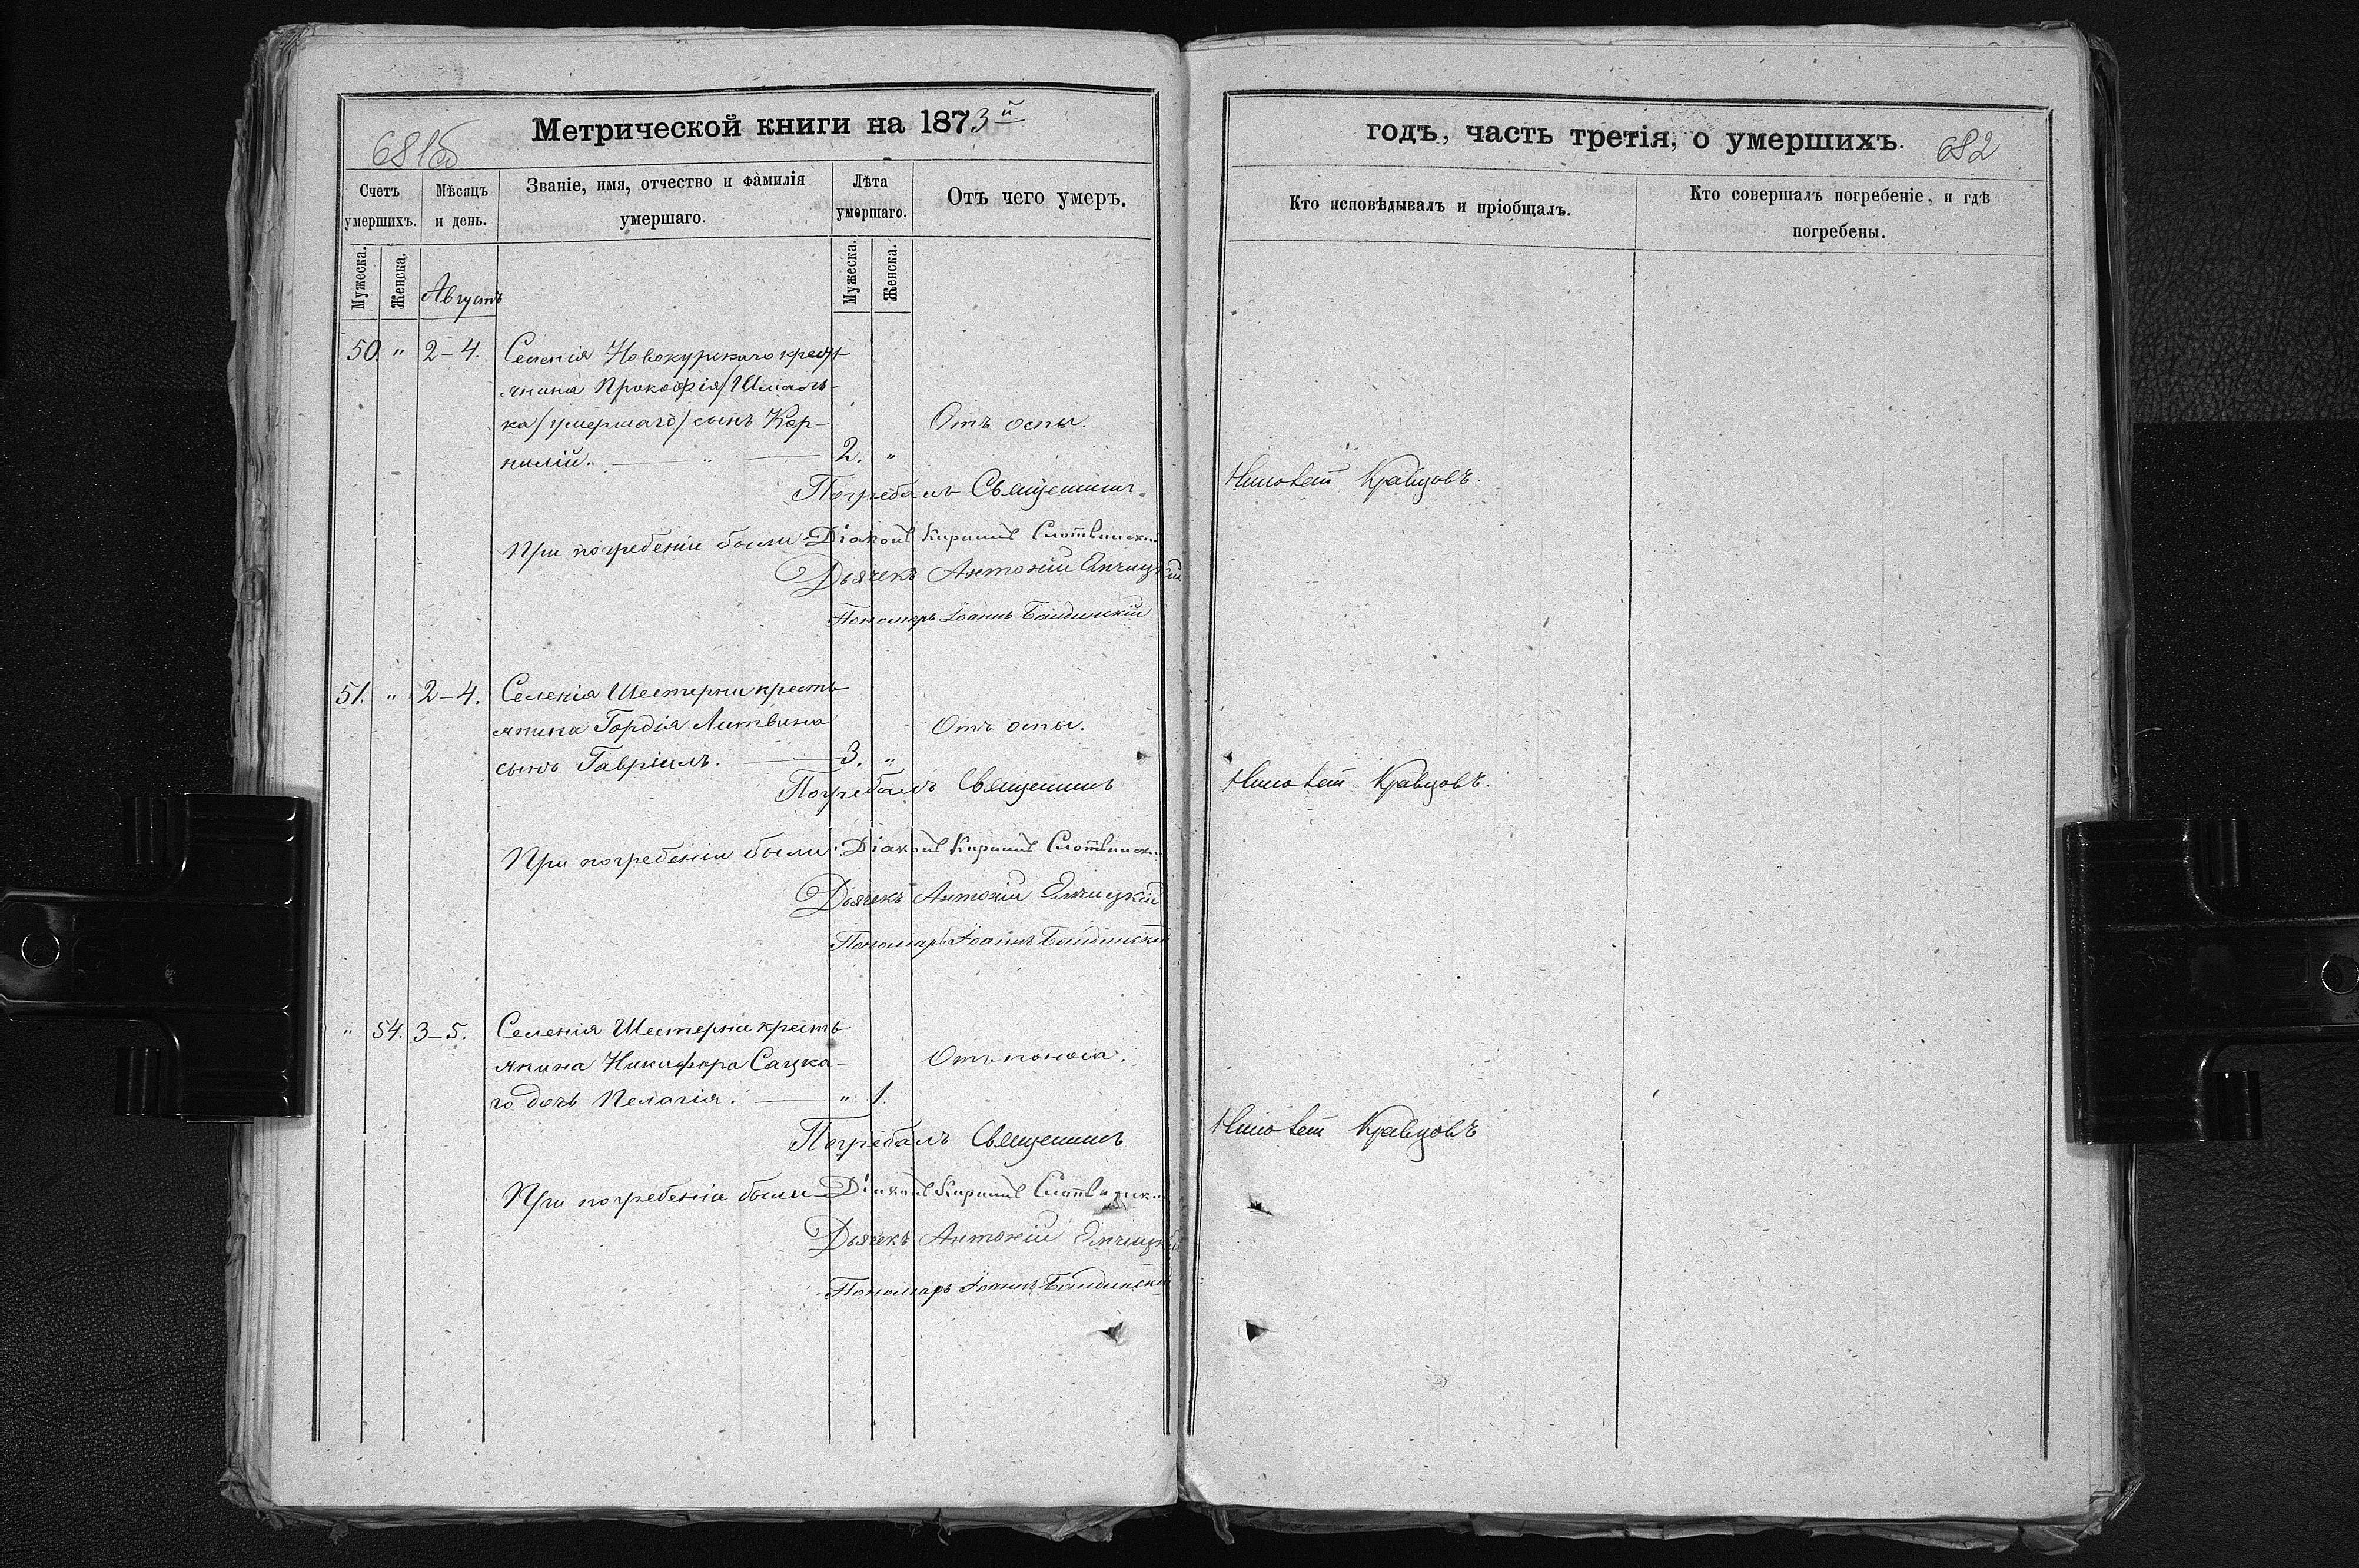 681об
Метрической книги на 1873й
Счетъ умершихъ.
Мѣсяцъ и день.
Званіе, имя, отчество и фамилія умершаго.
Лѣта умершаго.
Отъ чего умеръ.
Мужеска.
Женска.
Августъ
Мужеска.
Женска.
50. " 2-4. Селенія Новокурскаго кресть
янина Прокофія /Шмаль-
ка/ умершаго/ сынъ Кор- Отъ оспы.
нилій. — " — 2. "
Погребалъ Священникъ
При погребеніи были: Діаконъ Кириллъ Слотвинскій
Дьячекъ Антоній Елчицкій
Пономарь Іоаннъ Бандинскій
51. " 2-4. Селенія Шестерни кресть
янина Гордія Литвина Отъ оспы.
сынъ Гавріилъ. — 3. "
Погребалъ Священникъ
При погребеніи были: Діаконъ Кириллъ Слотвинскій
Дьячекъ Антоній Елчицкій
Пономарь Іоаннъ Бандинскій
" 54. 3-5. Селенія Шестерни кресть
янина Никифора Сацка- Отъ поноса.
го дочь Пелагія. — " 1.
Погребалъ Священникъ
При погребеніи были Діаконъ Кириллъ Слотвинскій
Дьячекъ Антоній Елчицкій
Пономарь Іоаннъ Бандинскій
годъ, часть третія, о умершихъ.
682
Кто исповѣдывалъ и пріобщалъ.
Кто совершалъ погребеніе, и гдѣ погребены.
Кравцовъ.
Кравцовъ.
Кравцовъ